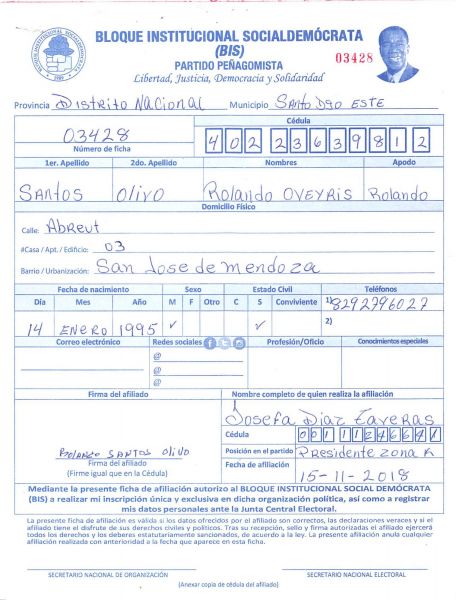 BLOQUE INSTITUCIONAL SOCIALDEMÓCRATA
(BIS)
PARTIDO PEÑAGOMISTA
Libertad, Justicia, Democracia y Solidaridad
03428
Provincia Distrito Nacional Municipio Santo Dgo ESTE
Cédula
03428 402 2363981 2
Número de ficha
1er. Apellido 2do. Apellido Nombres Apodo
Santos Olivo Rolando OVEYRIS Rolando
Domicilio Físico
Calle: Abreut
#Casa / Apt. / Edificio: 03
Barrio / Urbanización: San Jose de Mendoza
Fecha de nacimiento Sexo Estado Civil Teléfonos
Día Mes Año M F Otro C S Conviviente 1) 8292796027
2)
14 ENERO 1995 ✓ ✓
Correo electrónico Redes sociales Profesión/Oficio Conocimientos especiales
@
@
@
Firma del afiliado Nombre completo de quien realiza la afiliación
Josefa Diaz Taveras
Cédula
Rolando SANTOS Olivo
Posición en el partido Presidente zona K
Firma del afiliado
(Firme igual que en la Cédula)
Fecha de afiliación
15-11-2018
Mediante la presente ficha de afiliación autorizo al BLOQUE INSTITUCIONAL SOCIAL DEMÓCRATA
(BIS) a realizar mi inscripción única y exclusiva en dicha organización política, así como a registrar
mis datos personales ante la Junta Central Electoral.
La presente ficha de afiliación es válida si los datos ofrecidos por el afiliado son correctos, las declaraciones veraces y si el
afiliado tiene el disfrute de sus derechos civiles y políticos. Tras su recepción, sello y firma autorizadas el afiliado ejercerá
todos los derechos y los deberes estatutariamente sancionados, de acuerdo a la ley. La presente afiliación anula cualquier
afiliación realizada con anterioridad a la fecha que aparece en esta ficha.
SECRETARIO NACIONAL DE ORGANIZACIÓN SECRETARIO NACIONAL ELECTORAL
(Anexar copia de cédula del afiliado)